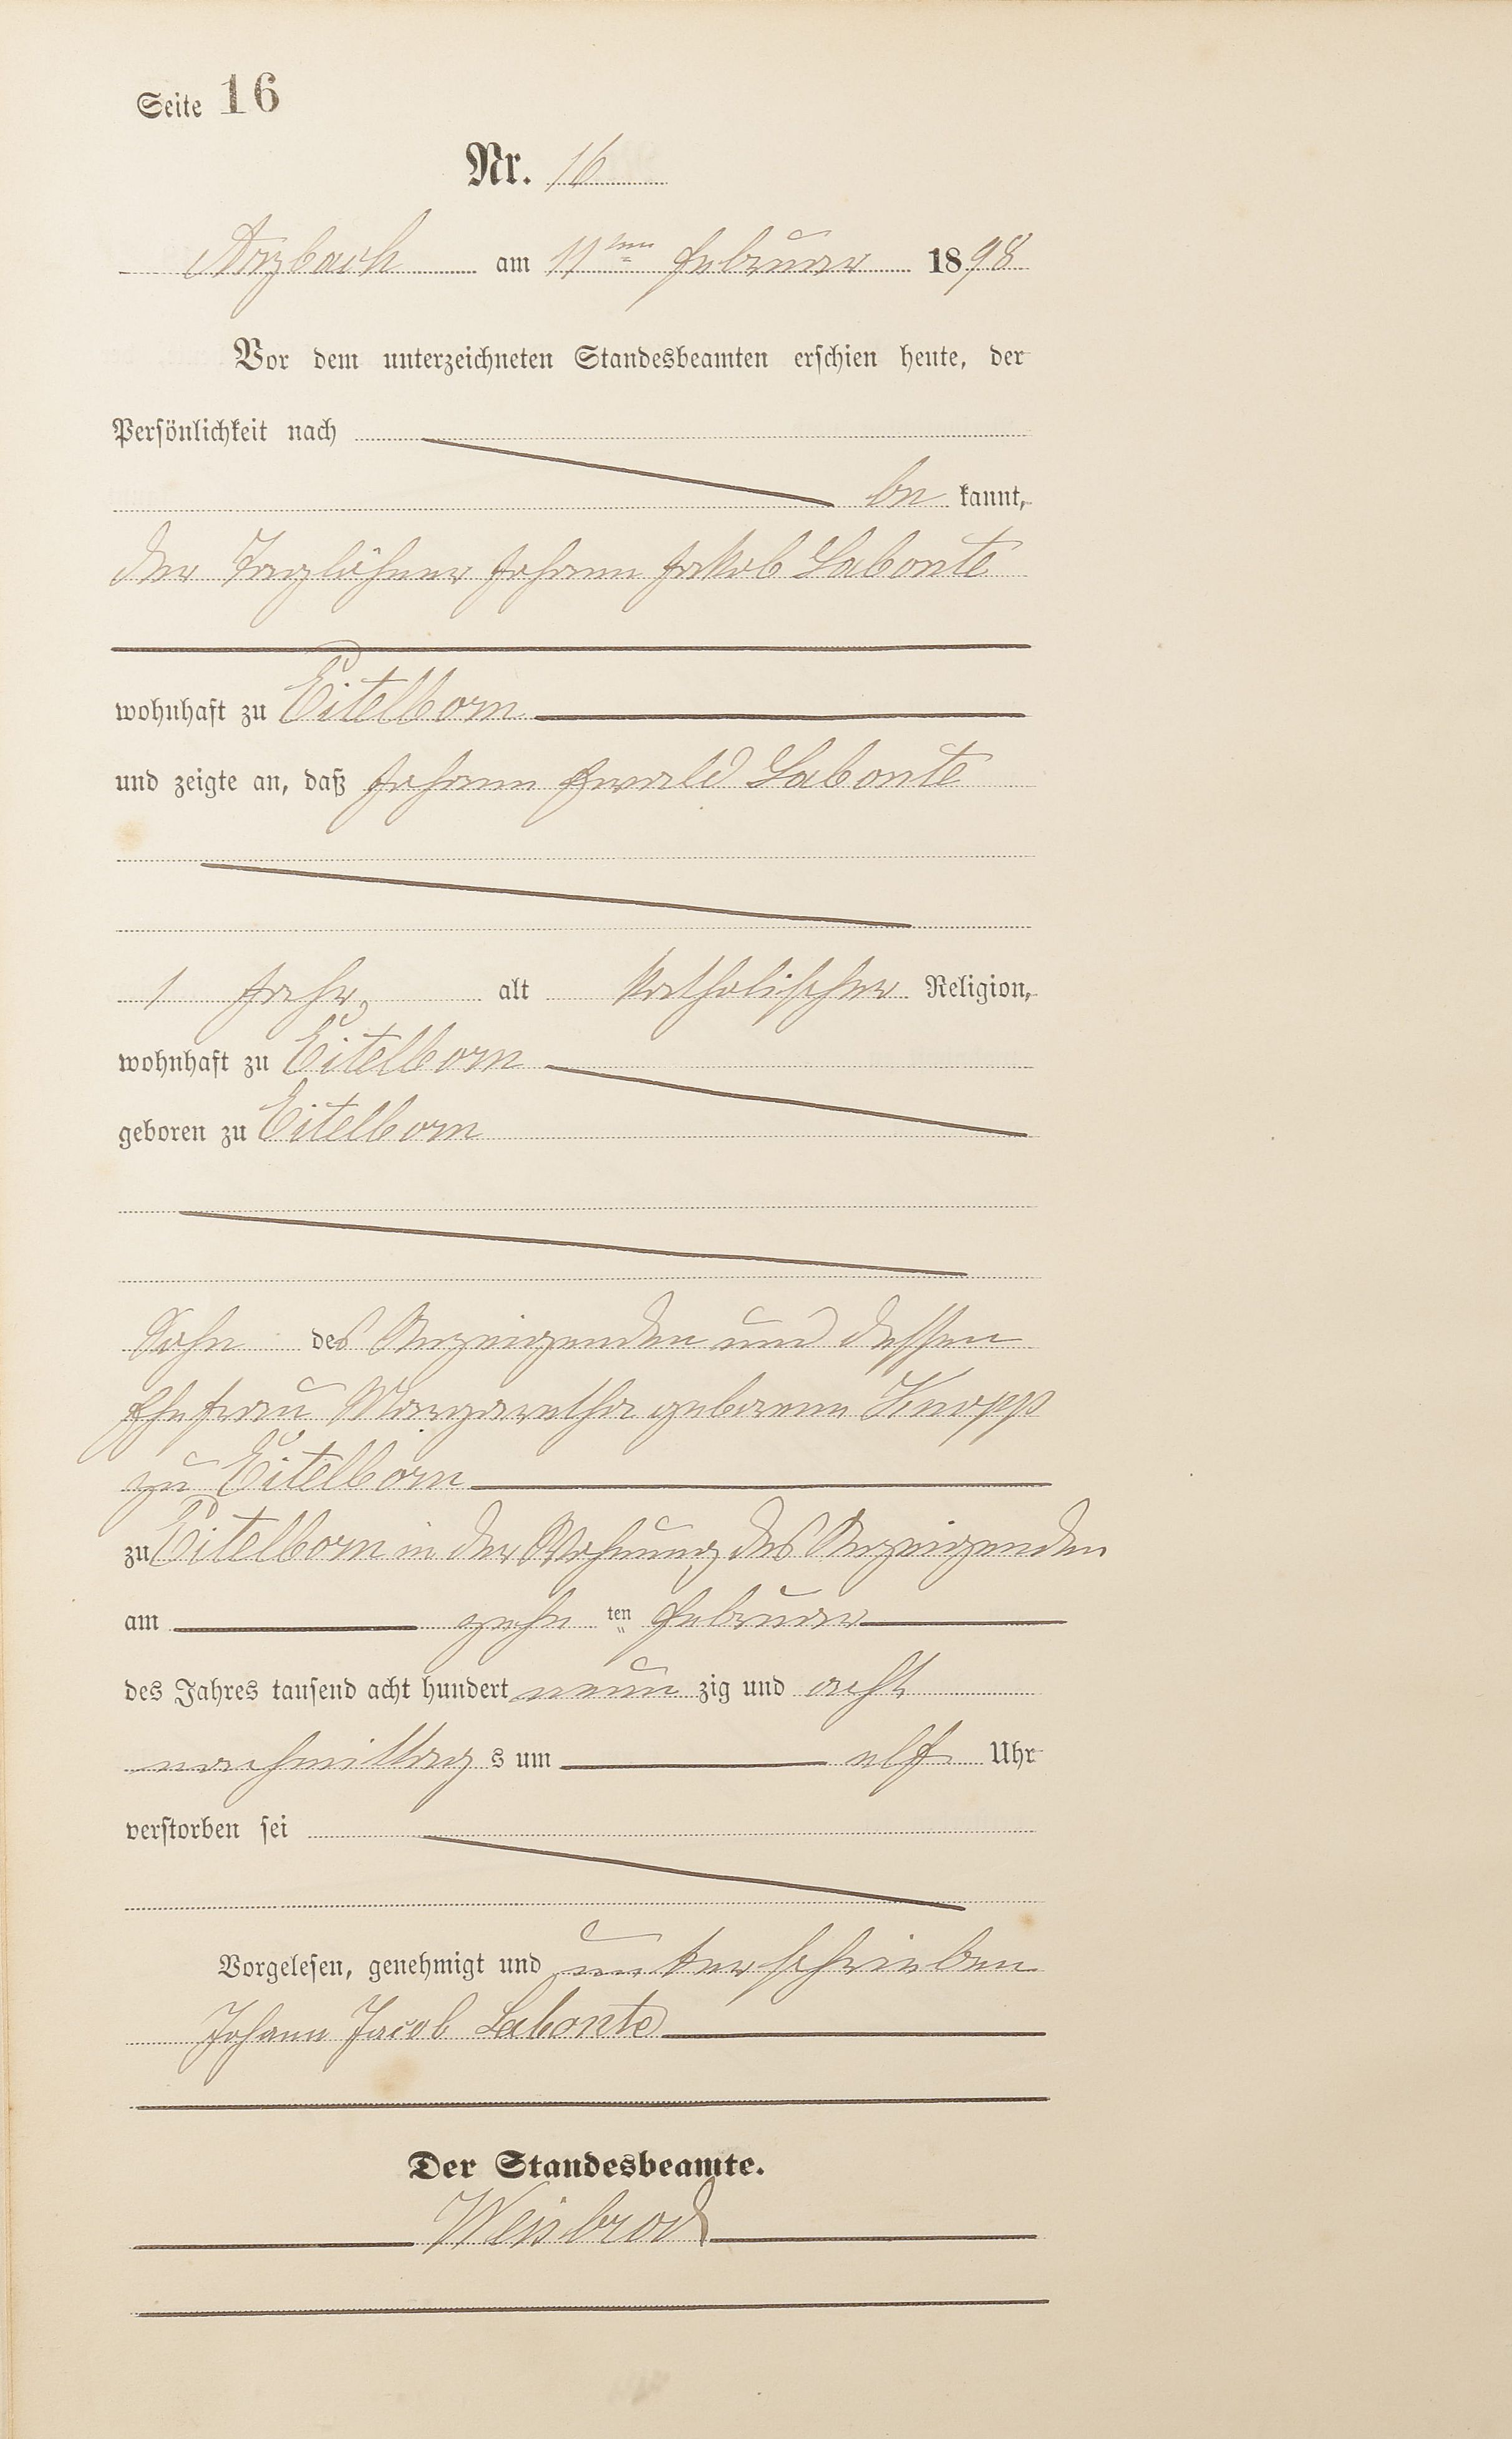 Seite 16
Nr. 16
Arzbach am 11ten Februar 1898
Vor dem unterzeichneten Standesbeamten erschien heute, der
Persönlichkeit nach
be kannt,
der Taglöhner Johann Jakob Labonte
wohnhaft zu Eitelborn
und zeigte an, daß Johann Ewald Labonte
1 Jahr, alt katholischer Religion,
wohnhaft zu Eitelborn
geboren zu Eitelborn
Sohn des Anzeigenden und dessen
Ehefrau Margaretha geborene Knopp
zu Eitelborn
zu Eitelborn in der Wohnung des Anzeigenden
am zehn ten Februar
des Jahres tausend acht hundert neun zig und acht
nachmittag s um elf Uhr
verstorben sei
Vorgelesen, genehmigt und unterschrieben
Johann Jacob Labonte
Der Standesbeamte.
Weisbrod